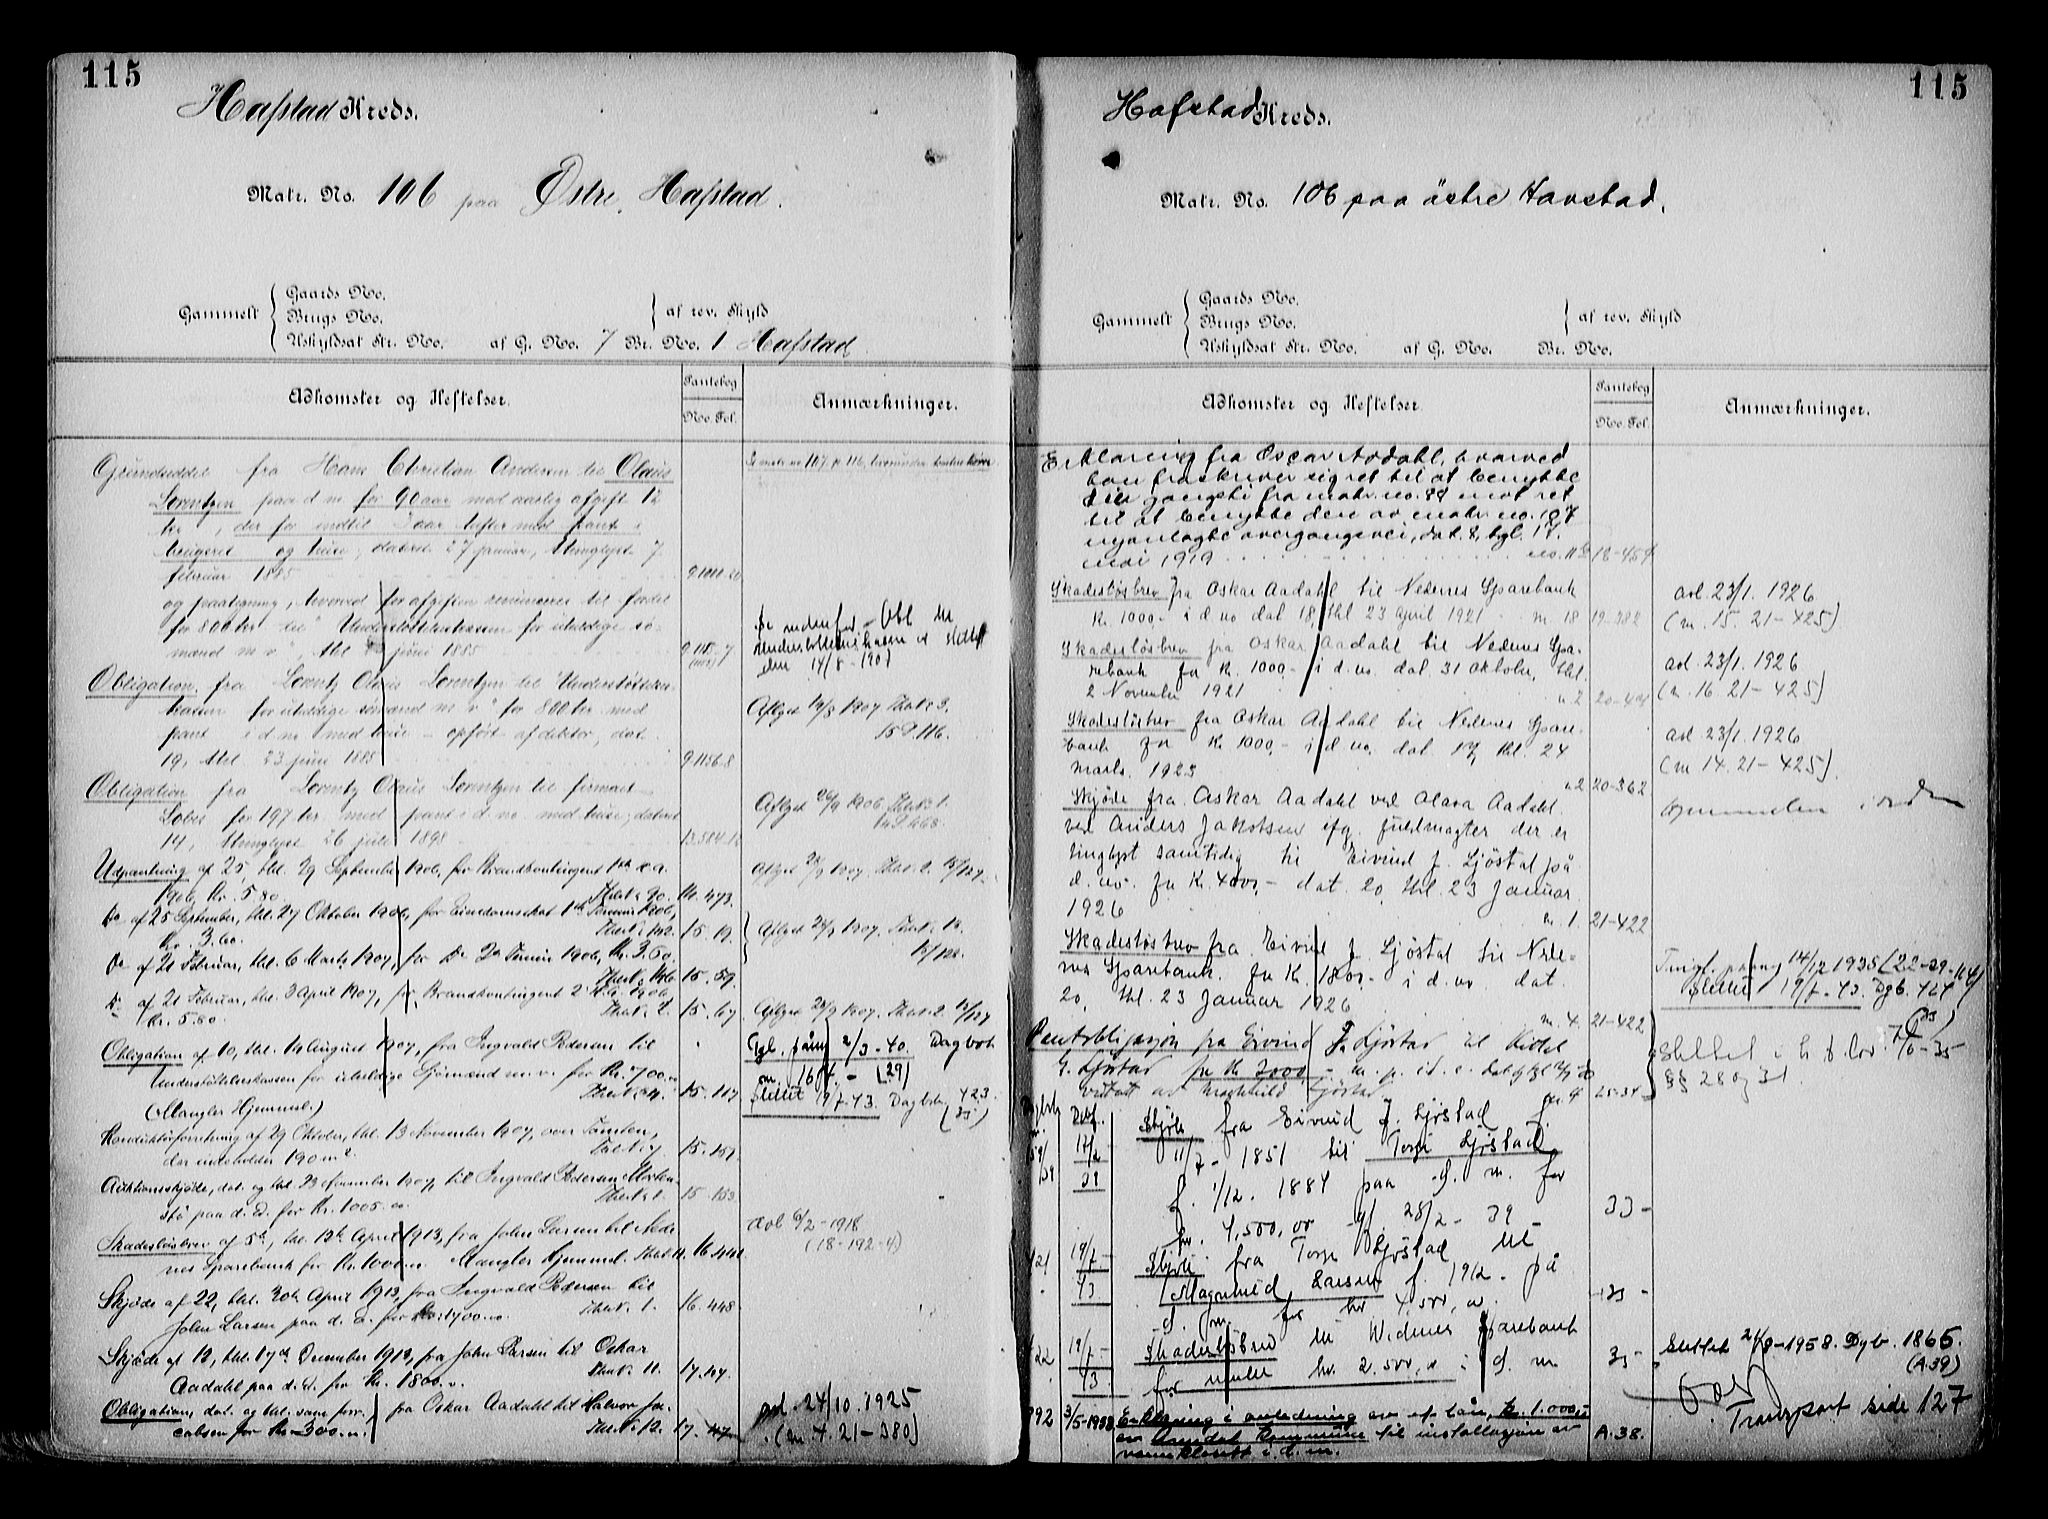 115
Hafstad Kreds.
Matr. No. 106 paa Østre Hafstad.
Gammelt
Gaards No.
Brugs No.
Uskyldsat Str. No.
af rev. Skyld
af G. No. 7 Br. No. 1 Hafstad
Adkomster og Heftelser.
Pantebog
No. Fol.
Anmærkninger.
Grundseddel fra Hans Christian Andersen til Olaus
Lorentzen paa d. no for 90 aar mod aarlig afgift 12
kr, der for indtil 3 aar hefter med pant i
og huse, dateret 27 januar, thinglyst 7
februar 1885
og paategning, hvorved for afgiften renunceres til fordel
for 800 kr til "Understøttelseskassen for uheldige sø-
mænd m v", thl juni 1885
Se nedenfor - Obl til
Understøttelseskassen er slettet
den 14/8-1907
Obligation fra Lorentz Olaus Lorentzen til "Understøttelses-
kassen for uheldige sømænd m v" for 800 kr med
pant i d no med huse - opført af debitor, dat.
19, thl 23 juni 1885
9.1156.8
Aflyst 14/8 1907 Thet. 3.
15 P. 116.
Obligation fra Lorentz Olaus Lorentzen til firmaet
for 197 kr med pant i d. no med huse, dateret
14, thinglyst 26 juli 1898
Aflyst 26/9 1906 Thet. 1.
Udpantning af 25, thl. 29 September 1906, for Brandkontingent 1ste
1906, Kr. 5.80 Thet. 90. 14. 473.
Aflyst 28/9 1907. Thet. 2. 15/127
Do af 25 September, thl. 27 Oktober 1906, for Eiendomsskat 1ste Termin 1906,
Kr. 3.60. Thet. 142. 15. 19.
Aflyst 28/9 1907. Thet. 18.
15/128.
Do af 21 Februar, thl. 6 Marts 1907, for Do 2den Termin 1906, Kr. 3.50.
Thet. 146. 15. 59.
Do af 21 Februar, thl. 3 April 1907, for Brandkontingent 2 1906
Kr. 5.80. Thet. 2. 15. 67
Aflyst 28/9 1907. Thet. 2. 15/127
Obligation af 10, thl. 14 August 1907, fra Ingvald Pedersen til
Understøttelseskassen for uheldige Sjømænd m. v. for Kr. 700.00
(Mangler Hjemmel.) 15. 117
Tgl. påny 2/3-40. Dagbok
no. 167. - (29)
Slettet 19/7-43. Dagbok 423.
(35)
Konduktørforretning af 29 Oktober, thl. 13 November 1907, over Tomten,
der indeholder 190 m². Thet. 7. 15. 157.
Auktionsskjøde, dat. og thl. 23 November 1907, til Ingvald Pedersen
paa d. E. for Kr. 1005.00 Thet. 1. 15. 153
Skadesløsbrev af 5te, thl. 12te April 1913, fra John Larsen til Nede-
nes Sparebank for Kr. 1000.00. Mangler Hjemmel. Thet. 11. 16. 441
avl 6/2-1918
(18-192-4)
Skjøde af 22, thl. 30te April 1913, fra Ingvald Pedersen til
John Larsen paa d. E. for Kr. 1700.00. Thet. 1. 16. 448
Skjøde af 12, thl. 17de December 1913, fra John Larsen til Oskar
Aadahl paa d. E. for Kr. 1800.00. Thet. 11. 17. 47.
Obligation, dat. og thl. som forr., fra Oskar Aadahl til Halvor Ja-
cobsen for Kr. 300.00. Thet. 12. 17. 47
avl. 24/10. 1925
(nr 4. 21-380)
115
Hafstad Kreds.
Matr. No. 106 paa østre Havstad.
Gammelt
Gaards No.
Brugs No.
Uskyldsat Str. No.
af rev. Skyld
af G. No. Br. No.
Adkomster og Heftelser.
Pantebog
No. Fol.
Anmærkninger.
Erklæring fra Oscar Aadahl, hvorved
han fraskriver sig ret til at benytte
sin gangsti fra matr. no. 88 mot ret
til at benytte den av matr. no. 107
nyanlagte overgangsvei, dat. 8, tgl. 17.
mai 1919 18-454
Skadesløsbrev fra Oskar Aadahl til Nedenes Sparebank
Kr. 1000.- i d no dat 18, thl 23 april 1921 n. 18 19-382
avl 23/1. 1926
(nr. 15. 21-425)
Skadesløsbrev fra Oskar Aadahl til Nedenes Spa-
rebank for Kr. 1000.- i d. no. dat. 31 oktober, thl.
2 November 1921 n 2 20-44
avl. 23/1. 1926
(nr. 16. 21-425)
Skadesløsbrev fra Oskar Aadahl til Nedenes Spare-
bank for Kr 1000.- i d no. dat 17, thl. 24
marts. 1923 n 2 20-362
avl 23/1. 1926
(nr 14. 21-425).
Skjøde fra Oskar Aadahl ved Olava Aadahl
ved Anders Jakobsen ifg. fuldmagter der er
tinglyst samtidig til Eivind J. Ljøstad på
d. no. for Kr. 4000,- dat. 20, thl. 23 Januar
1926 n. 1 21-422
Hjemmelen i orden
Skadesløsbrev fra Eivind J. Ljøstad til Nede-
nes Sparebank. for Kr. 1800.- i d. no. dat.
20, thl. 23 Januar 1926 n. 4. 21-422
Tingl. paany 14/12 1935 (22-29-
Slettet 19/7-43. Dgb. 424
(35)
Pantobligasjon fra Eivind J. Ljøstad til Kittel
G. Ljøstad for Kr 3000,- m. p. i d. e.
Ljøstad. 25-34
Slettet i h. t. lov 7/6-35
§§ 28 og 31
Dagbok
159/39 17/2 39 Skjøte fra Eivind J. Ljøstad f.
11/7-1851 til Torje Ljøstad
f. 1/12. 1884 paa d. m. for
kr. 4,500,00 28/2-39 33-
421 19/7-43 Skjøte fra Torje Ljøstad til
Magnhild Larsen f. 1912. på
d. m. for kr 4,500,00. 35-
422 19/7-43 Skadesløsbrev til Nedenes Sparebank
for under kr. 2.500,00 i d. m 35-
Slettet 21/8-1958. Dgb. 1865.
(A.39)
992 3/5-1958 Erklæring i anledning av et lån, kr. 1.000,-
av Arendal kommune til installasjon av
vannklosett i d. m. A.38.
Transport side 127